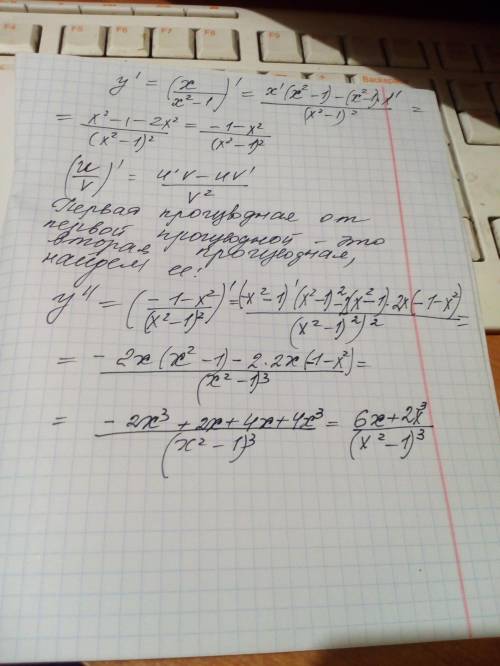 y' = (x/(x²-1))' = (x'(x²-1)-(x²-1)'x')/(x²-1)² =
= (x²-1-2x²)/(x²-1)² = (-1-x²)/(x²-1)²
(u/v)' = (u'v-uv')/v²
Первая производная от
первой производной - это
вторая производная,
найдем ее:
y'' = ((-1-x²)/(x²-1)²)' = ((-x²-1)'(x²-1)²-2(x²-1)·2x(-1-x²))/((x²-1)²)² =
= (-2x(x²-1)-2·2x(-1-x²))/(x²-1)³ =
= (-2x³+2x+4x+4x³)/(x²-1)³ = (6x+2x³)/(x²-1)³
Backspace